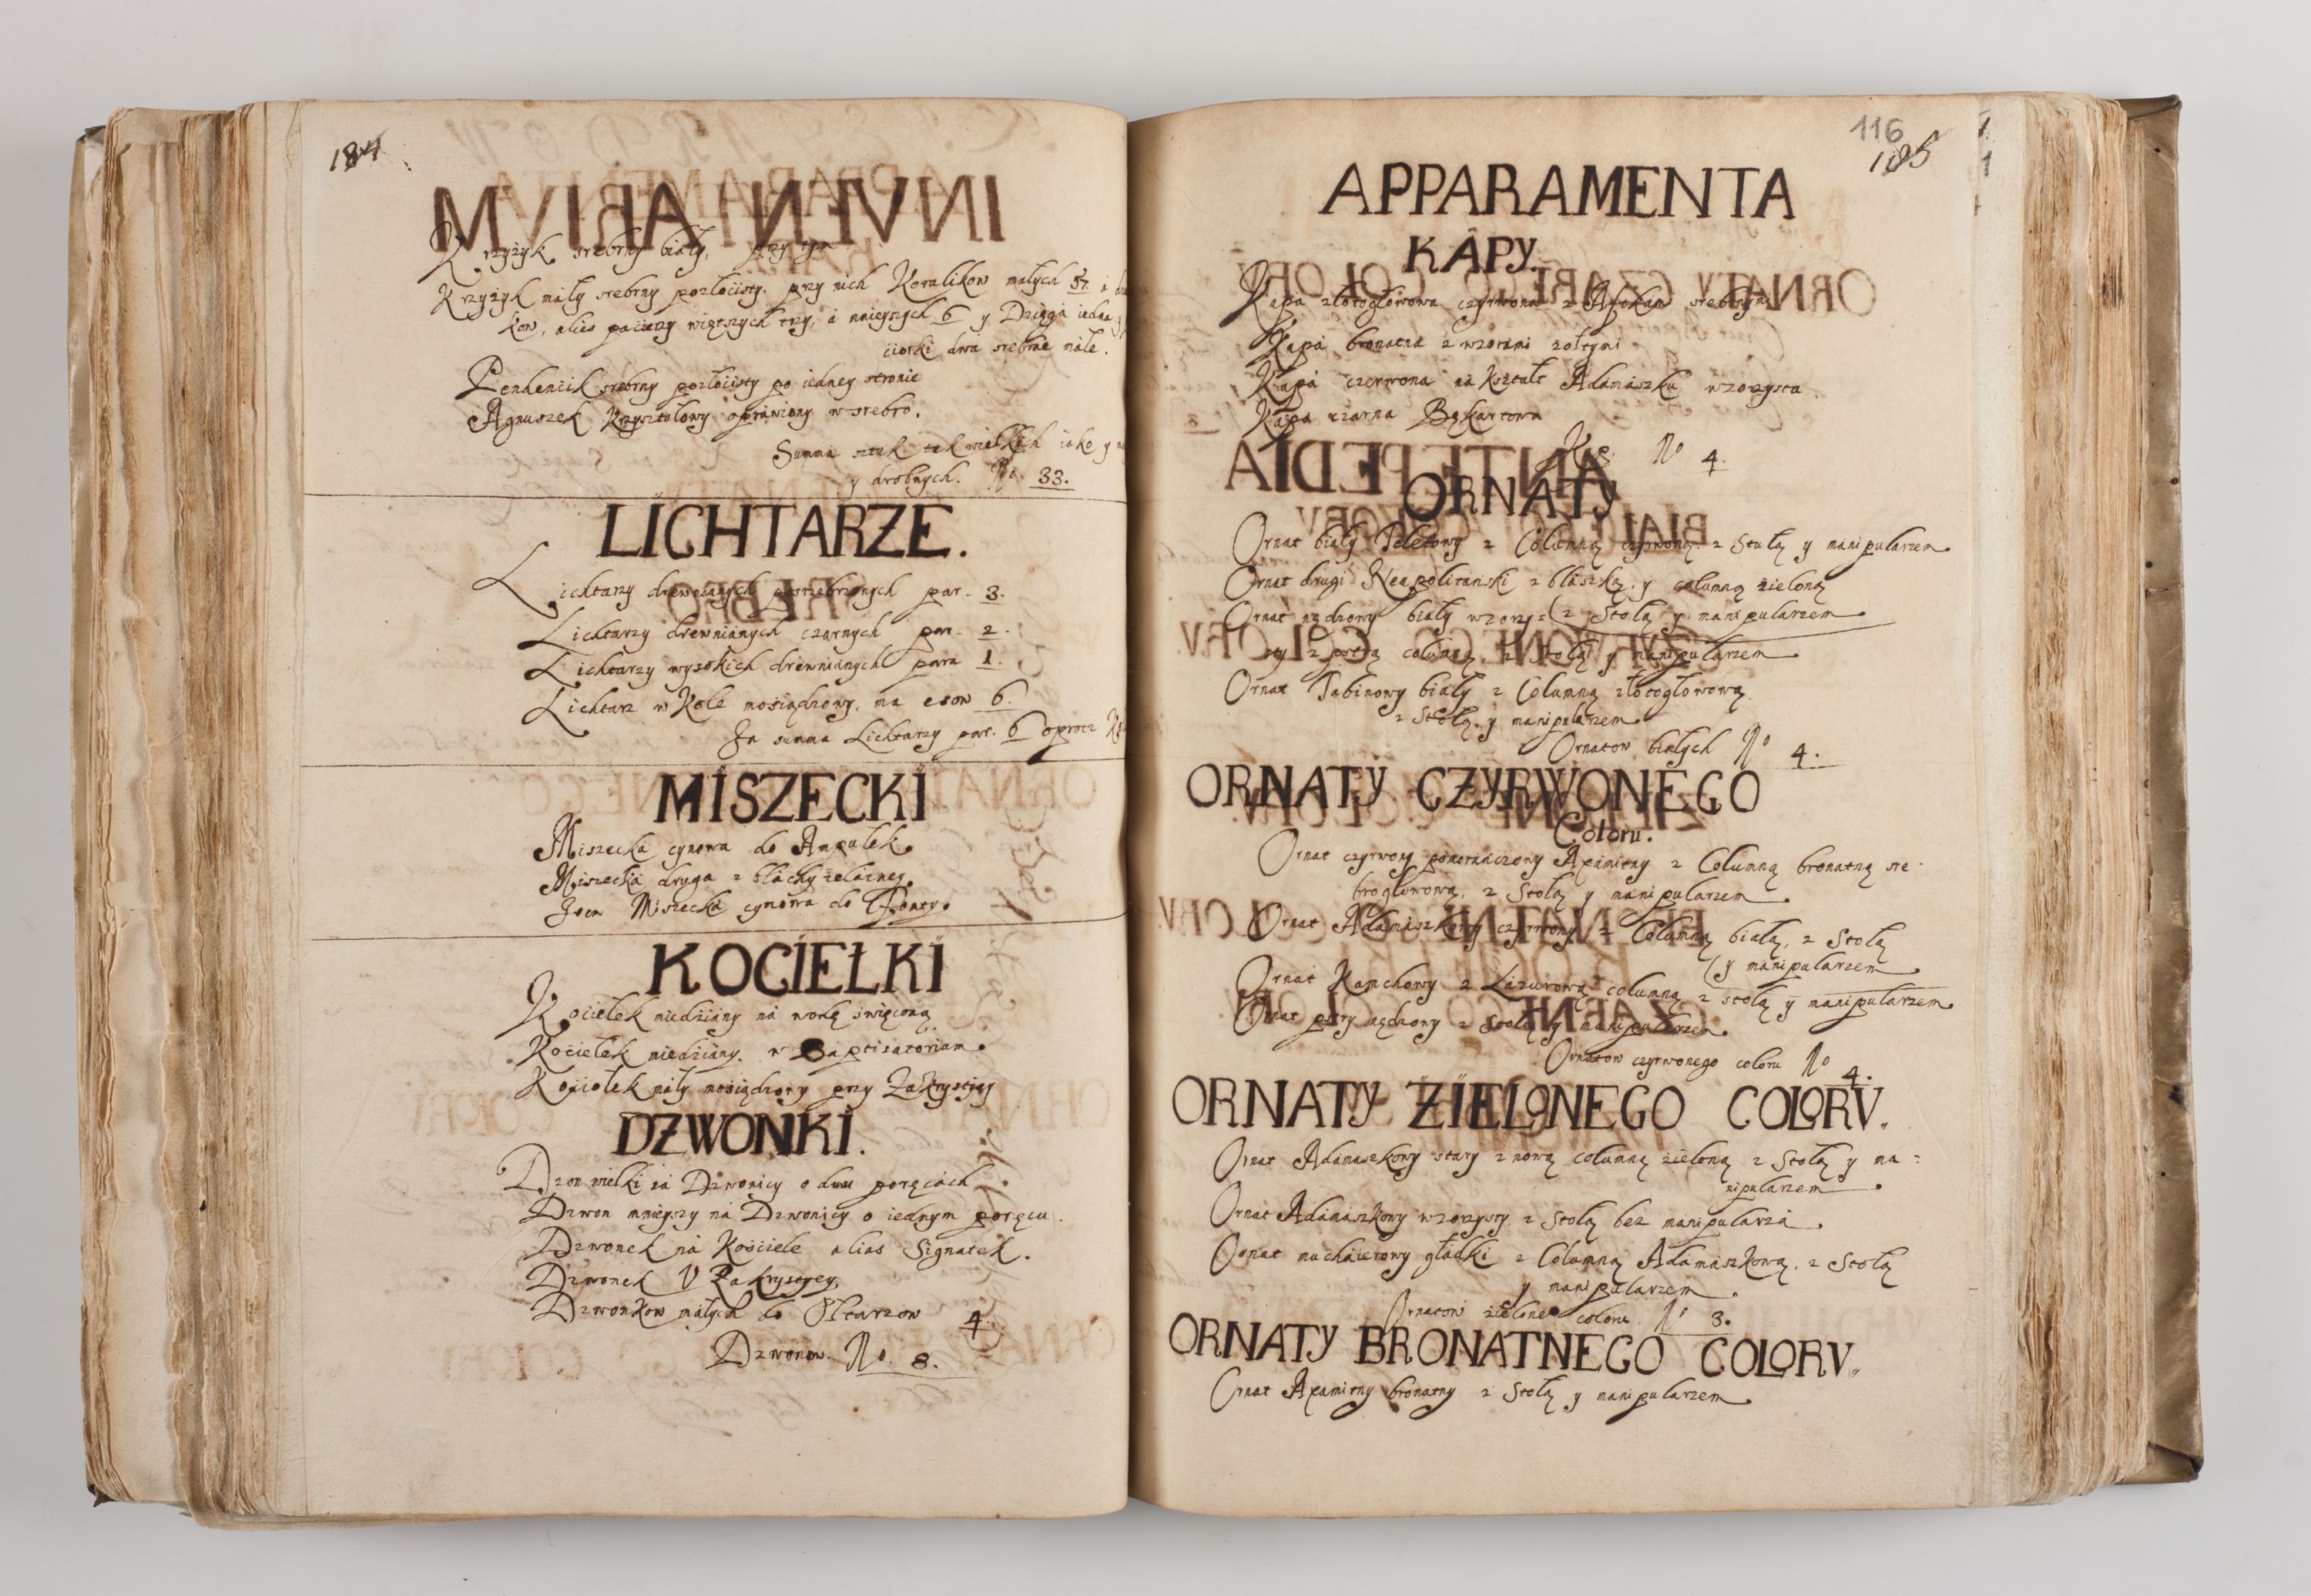 184
Krzyżyk srebrny biały, przy tym
Krzyżyk mały srebrny pozłocisty. przy nich Koralikow małych
kow, alias pacierzy więtszych trzy, á mnieyszych 6 y Dzięgá iedna
ciorki dwa srebrne máłe.
Pendencik srebrny pozłocisty po iedney stronie
Agnuszek Krzyształowy oprawiony w srebro.
Summa sztuk tak wielkich iako y
y drobnych. No. 33.
LICHTARZE.
Lichtarzy drewnianych posrzebrzonych par. 3.
Lichtarzy drewniánych czarnych par. 2.
Lichtarzy wysokich drewniánych para 1.
Lichtarz w Kole mosiądzowy, ma 6.
In summa Lichtarzy par. 6 oprocz
MISZECKI
Miszecka cynowa do Ampułek.
Miszecká druga z bláchy żelázney.
Item Miszecka cynowa do Fonty.
KOCIEŁKI
Kociełek miedziány ná wodę święconą
Kociełek miedziány. w Baptisatorium.
Kociołek máły mosiądzowy przy Zakrystyey
DZWONKI.
Dzwon wielki ná Dzwonicy o dwu poręciách.
Dzwon mnieyszy ná Dzwonicy o iednym poręciu.
Dzwonek ná Kościele alias Signatek.
Dzwonek V Zakrystyey.
Dzwonkow máłych do Ołtarzow 4.
Dzwonow. No. 8.
116
185
APPARAMENTA
KAPY.
Kapa złotogłowowa czyrwona z srebrnym
Kápá bronatna z wzorámi żołtymi
Kápá czerwona ná kształt Adámászku wzorzysta
Kápa czarna Bękartowa
Kap. No 4.
ORNATY
Ornat biały Teletowy z Columną czyrwoną. z Stułą y manipularzem
Ornat drugi Neapolitański z blaszką. y columną zieloną
(z Stołą y manipularzem
Ornat nędzowy biały wzorzy=
sty z columną, z Stołą y manipularzem
Ornat Tabinowy biały z Columną złotogłowową.
z Stołą. y manipularzem
Ornatow białych No 4.
ORNATY CZYRWONEGO
Coloru.
Ornat czyrwony pomeráńczowy Axámitny z Columną bronatną sre-
brogłowową, z Stołą y manipularzem
Ornat Adámászkowy czyrwony z Columną białą, z Stołą
(y manipularzem
Ornat Kamchowy z Lázurową columną z stołą y manipularzem
Ornat nędzowy z Stołą y manipularzem
Ornatow czyrwonego coloru No 4.
ORNATY ZIELONEGO COLORV.
Ornat Adámászkowy stary z nową columną zieloną z Stołą y ma=
nipularzem
Ornat Adámászkowy wzorzysty z Stołą bez manipularzá.
Ornat muchaierowy głádki z Columną Adámászkową. z Stołą
y manipularzem.
Ornatow coloru. No 3.
ORNATY BRONATNEGO COLORV.
Ornat Axamitny bronatny z Stołą y manipularzem